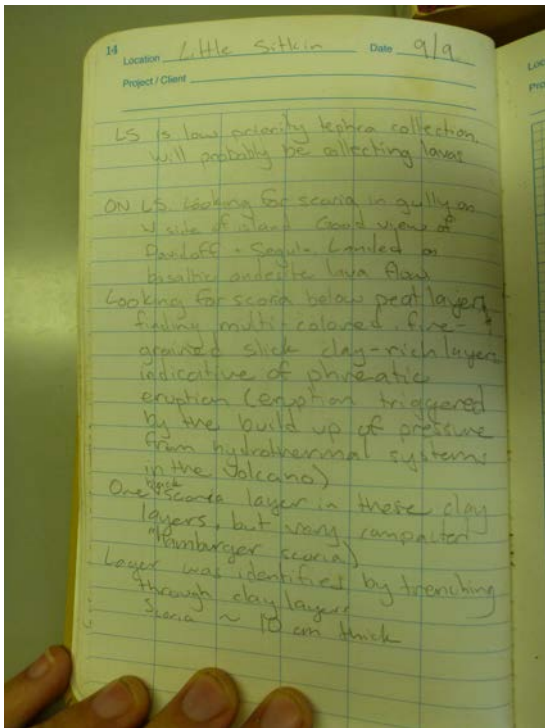 14
Location Little Sitkin Date 9/9
Project / Client
LS is low priority tephra collection.
Will probably be collecting lavas
ON LS. Looking for scoria in gully on
W side of island. Good view of
Davidoff + Segula. Landed on
basaltic andesite lava flow
Looking for scoria below peat layer,
finding multi-colored, fine-
grained slick clay-rich layers
indicative of phreatic
eruption (eruption triggered
by the build up of pressure
from hydrothermal systems
in the volcano)
black
One scoria layer in these clay
layers, but very compacted
"Hamburger scoria)
Layer was identified by trenching
through clay layers
Scoria ~ 10 cm thick
Loc
Pro